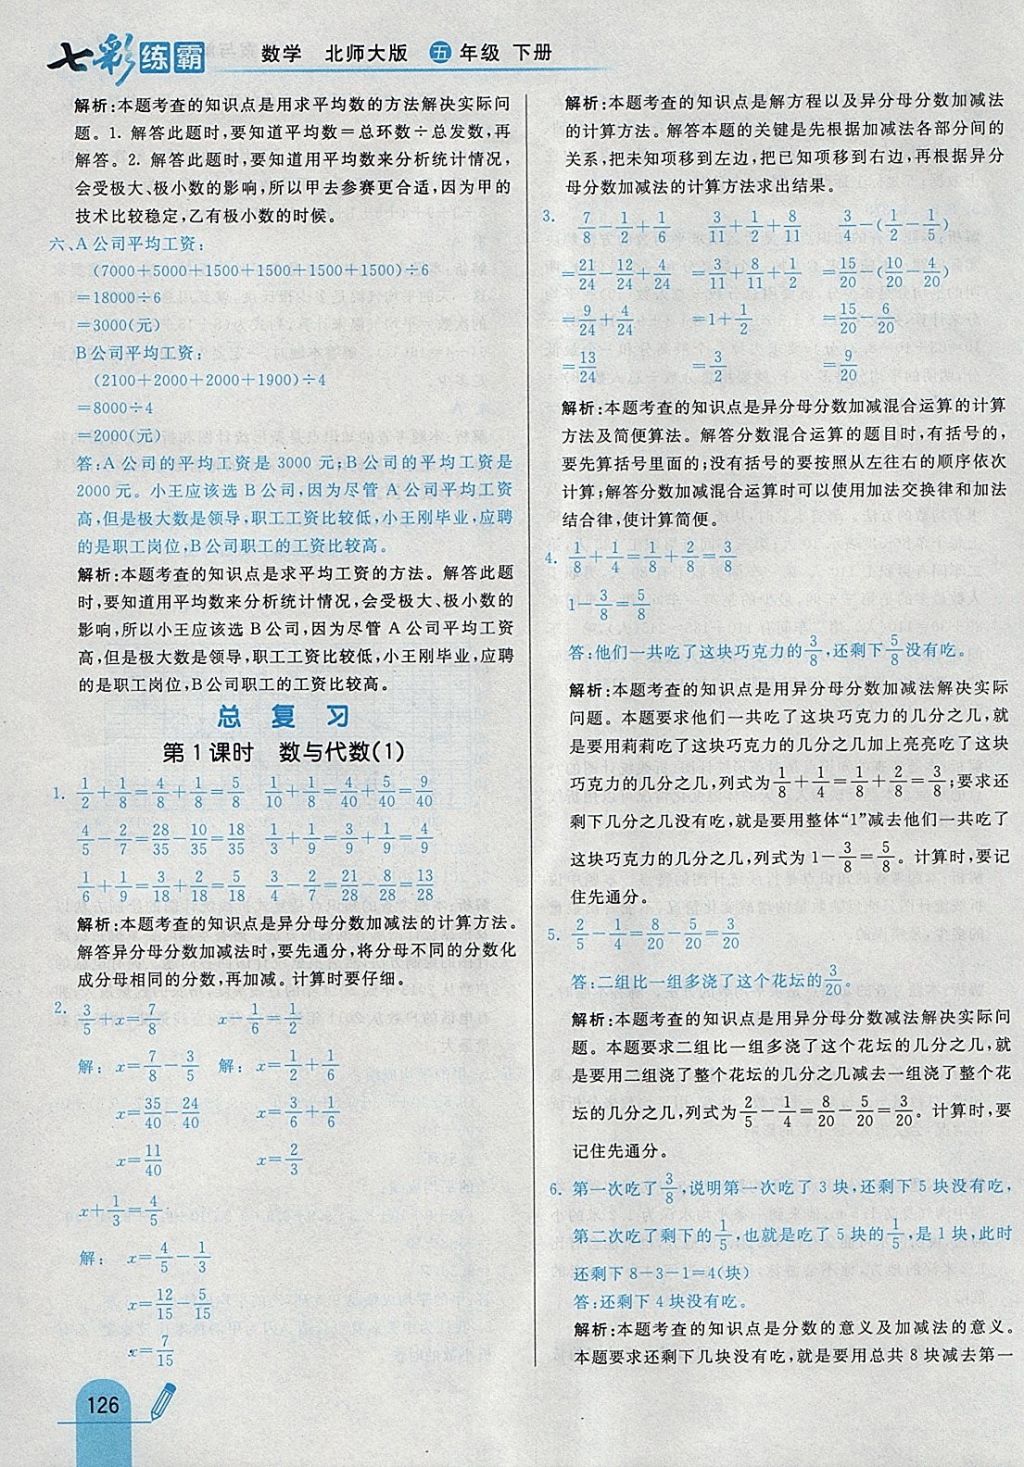 七彩练霸 数学 北师大版 五年级 下册
解析:本题考查的知识点是用求平均数的方法解决实际问
题。1. 解答此题时,要知道平均数=总环数÷总发数,再
解答。2. 解答此题时,要知道用平均数来分析统计情况,
会受极大、极小数的影响,所以甲去参赛更合适,因为甲的
技术比较稳定,乙有极小数的时候。
六、A公司平均工资:
(7000+5000+1500+1500+1500+1500)÷6
=18000÷6
=3000(元)
B公司平均工资:
(2100+2000+2000+1900)÷4
=8000÷4
=2000(元)
答:A公司的平均工资是 3000 元;B公司的平均工资是
2000 元。小王应该选 B 公司,因为尽管 A 公司平均工资
高,但是极大数是领导,职工工资比较低,小王刚毕业,应聘
的是职工岗位,B公司职工的工资比较高。
解析:本题考查的知识点是求平均工资的方法。解答此题
时,要知道用平均数来分析统计情况,会受极大、极小数的
影响,所以小王应该选 B 公司,因为尽管 A 公司平均工资
高,但是极大数是领导,职工工资比较低,小王刚毕业,应聘
的是职工岗位,B公司职工的工资比较高。
总 复 习
第1课时 数与代数(1)
1. 1/2+1/8=4/8+1/8=5/8 1/10+1/8=4/40+5/40=9/40
4/5-2/7=28/35-10/35=18/35 1/3+1/9=3/9+1/9=4/9
1/6+1/9=3/18+2/18=5/18 3/4-2/7=21/28-8/28=13/28
解析:本题考查的知识点是异分母分数加减法的计算方法。
解答异分母分数加减法时,要先通分,将分母不同的分数化
成分母相同的分数,再加减。计算时要仔细。
2. 3/5+x=7/8 x-1/6=1/2
解: x=7/8-3/5 解: x=1/2+1/6
x=35/40-24/40 x=3/6+1/6
x=11/40 x=2/3
x+1/3=4/5
解: x=4/5-1/3
x=12/15-5/15
x=7/15
解析:本题考查的知识点是解方程以及异分母分数加减法
的计算方法。解答本题的关键是先根据加减法各部分间的
关系,把未知项移到左边,把已知项移到右边,再根据异分
母分数加减法的计算方法求出结果。
3. 7/8-1/2+1/6 3/11+1/2+8/11 3/4-(1/2-1/5)
=21/24-12/24+4/24 =3/11+8/11+1/2 =15/20-(10/20-4/20)
=9/24+4/24 =1+1/2 =15/20-6/20
=13/24 =3/2 =9/20
解析:本题考查的知识点是异分母分数加减混合运算的计算
方法及简便算法。解答分数混合运算的题目时,有括号的,
要先算括号里面的;没有括号的要按照从左往右的顺序依次
计算;解答分数加减混合运算时可以使用加法交换律和加法
结合律,使计算简便。
4. 1/8+1/4=1/8+2/8=3/8
1-3/8=5/8
答:他们一共吃了这块巧克力的3/8,还剩下5/8没有吃。
解析:本题考查的知识点是用异分母分数加减法解决实际
问题。本题要求他们一共吃了这块巧克力的几分之几,就
是要用莉莉吃了这块巧克力的几分之几加上亮亮吃了这块
巧克力的几分之几,列式为1/8+1/4=1/8+2/8=3/8;要求还
剩下几分之几没有吃,就是要用整体“1”减去他们一共吃了
这块巧克力的几分之几,列式为1-3/8=5/8。计算时,要记
住先通分。
5. 2/5-1/4=8/20-5/20=3/20
答:二组比一组多浇了这个花坛的3/20。
解析:本题考查的知识点是用异分母分数减法解决实际问
题。本题要求二组比一组多浇了这个花坛的几分之几,就
是要用二组浇了整个花坛的几分之几减去一组浇了整个花
坛的几分之几,列式为2/5-1/4=8/20-5/20=3/20。计算时,要
记住先通分。
6. 第一次吃了3/8,说明第一次吃了 3 块,还剩下 5 块没有吃,
第二次吃了剩下的1/5,也就是吃了 5 块的1/5,是 1 块,此时
还剩下 8-3-1=4(块)
答:还剩下 4 块没有吃。
解析:本题考查的知识点是分数的意义及加减法的意义。
本题要求还剩下几块没有吃,就是要用总共 8 块减去第一
126